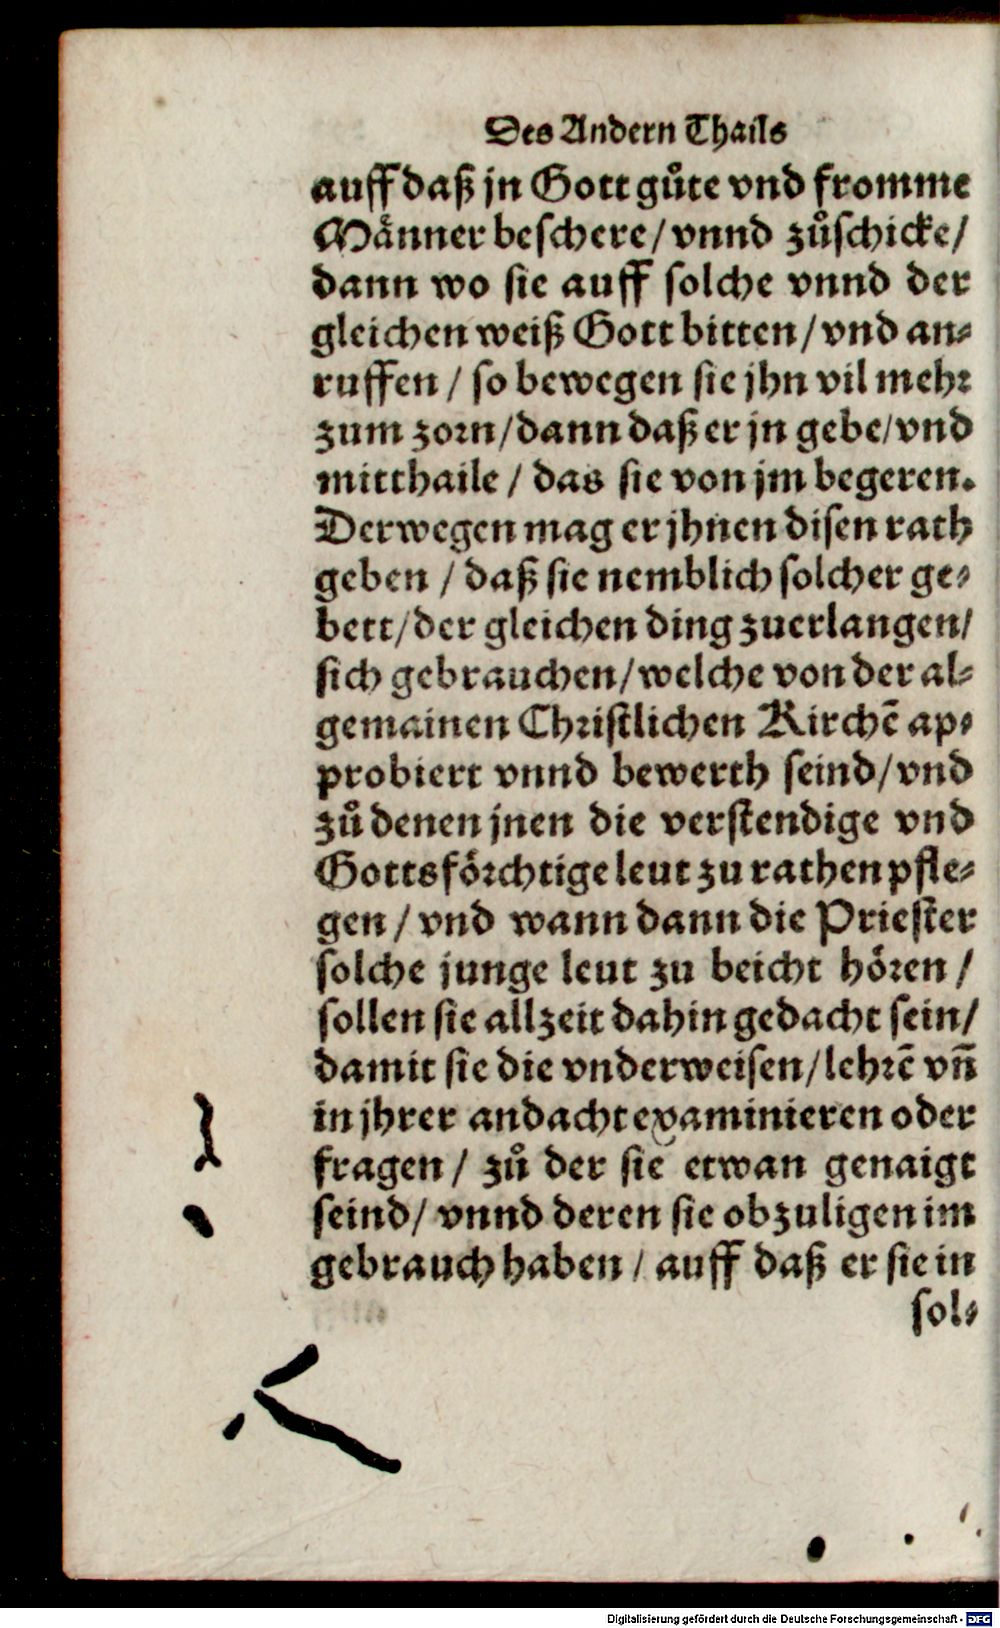 Des Andern Thails
auff daß jn Gott gůte vnd fromme
Männer beschere/ vnnd zůschicke/
dann wo sie auff solche vnnd der
gleichen weiß Gott bitten/ vnd an⸗
ruffen / so bewegen sie jhn vil mehr
zum zorn/ dann daß er jn gebe/ vnd
mitthaile / das sie von jm begeren.
Derwegen mag er jhnen disen rath
geben / daß sie nemblich solcher ge⸗
bett/ der gleichen ding zuerlangen/
sich gebrauchen/ welche von der al⸗
gemainen Christlichen Kirchẽ ap⸗
probiert vnnd bewerth seind/ vnd
zů denen jnen die verstendige vnd
Gottsförchtige leut zu rathen pfle⸗
gen / vnd wann dann die Priester
solche junge leut zu beicht hören /
sollen sie allzeit dahin gedacht sein/
damit sie die vnderweisen/ lehrẽ vñ
in jhrer andacht examinieren oder
fragen / zů der sie etwan genaigt
seind/ vnnd deren sie ob zuligen im
gebrauch haben / auff daß er sie in
sol⸗
Digitalisierung gefördert durch die Deutsche Forschungsgemeinschaft - DFG